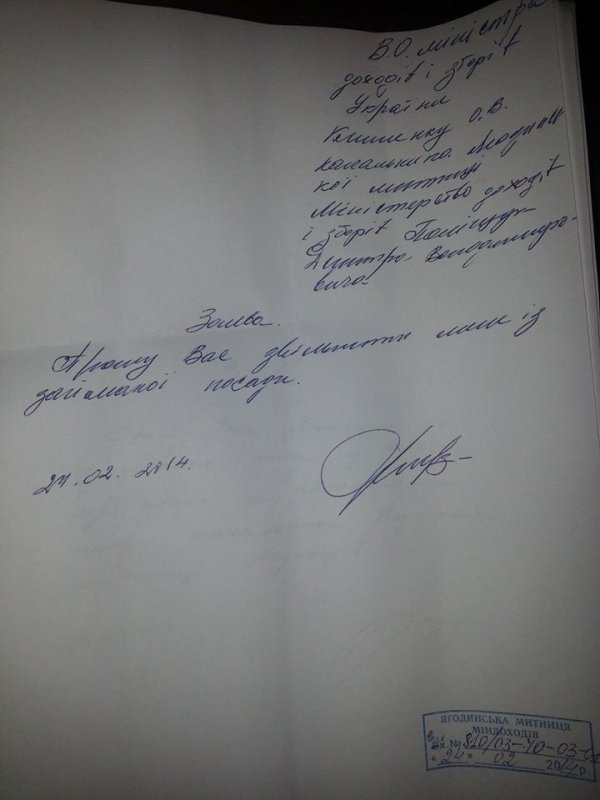 В.О. міністра
доходів і зборів
України
Клименку О.В.
начальника Ягодинсь
кої митниці
Міністерство доходів
і зборів
Дмитра Володимиро-
вича
Заява.
Прошу Вас звільнити мене із
займаної посади.
24.02.2014.
ЯГОДИНСЬКА МИТНИЦЯ
МІНДОХОДІВ
Вх. №
"24" 02 2014 р